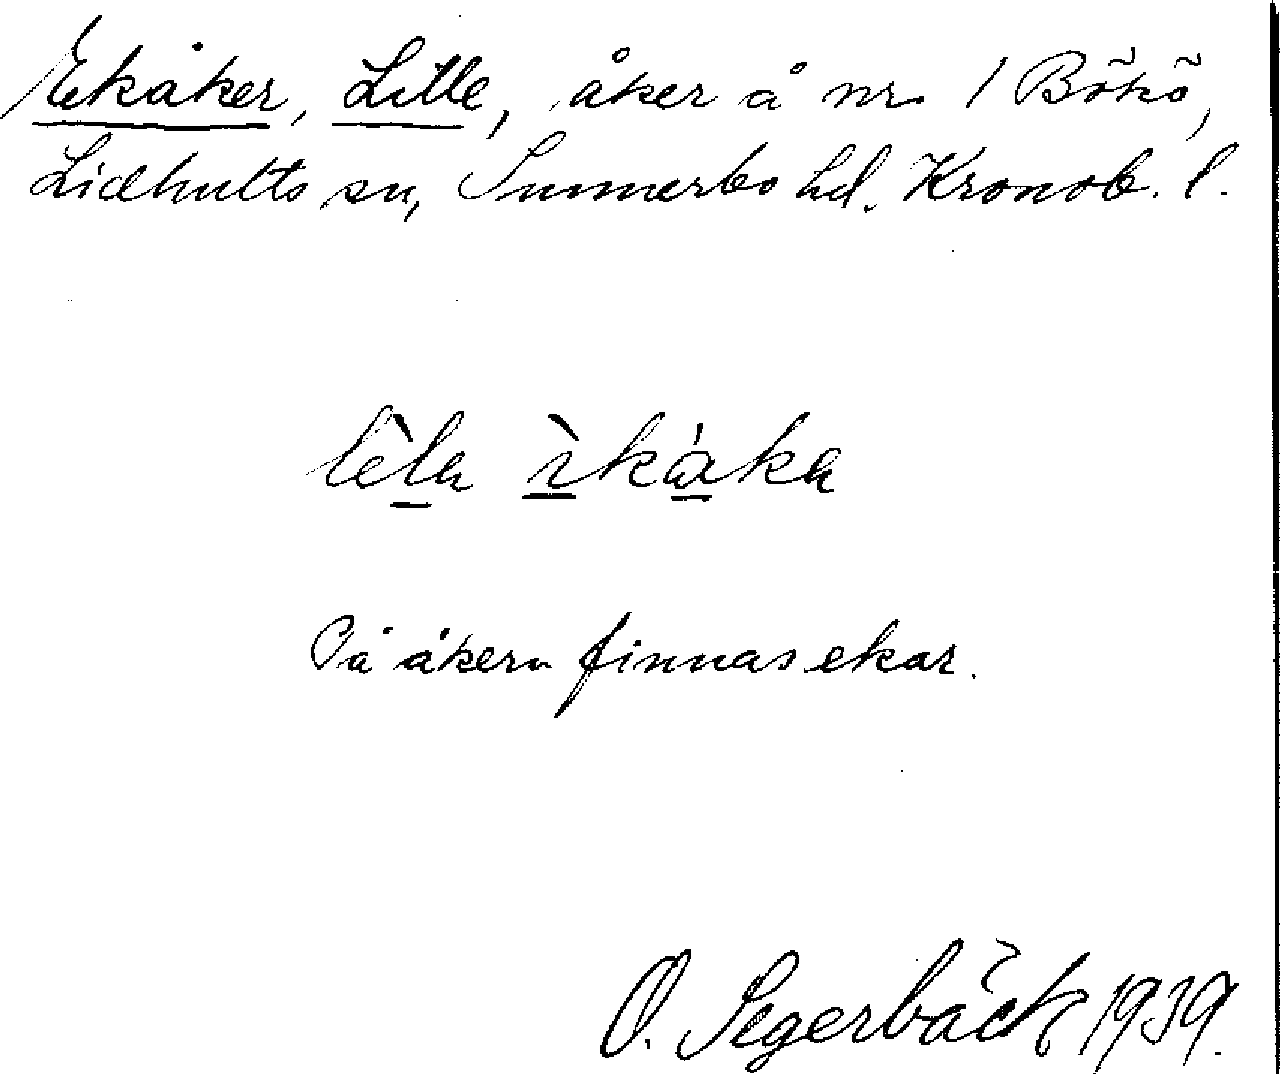 Ekåker, Lille, åker å nr 1 Bökö,
Lidhults sn, Sunnerbo hd. Kronob. l.
lèla ìkáka
På åkern finnas ekar.
O. Segerbäck 1939.